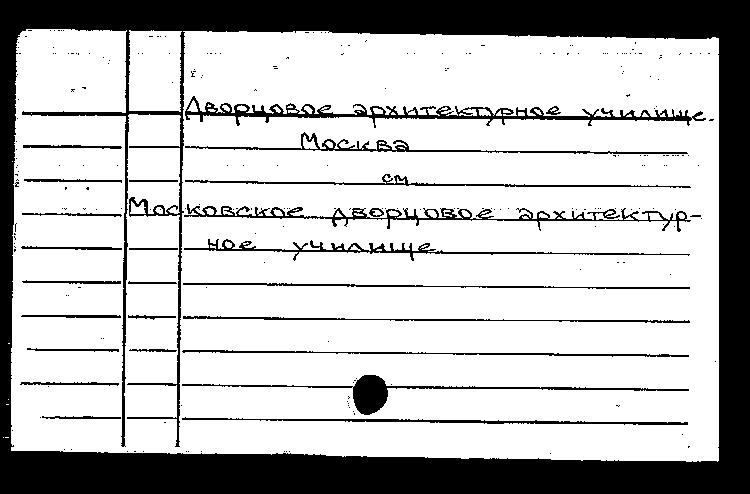 Дворцовое архитектурное училище.
Москва
см
Московское дворцовое архитектур-
ное училище